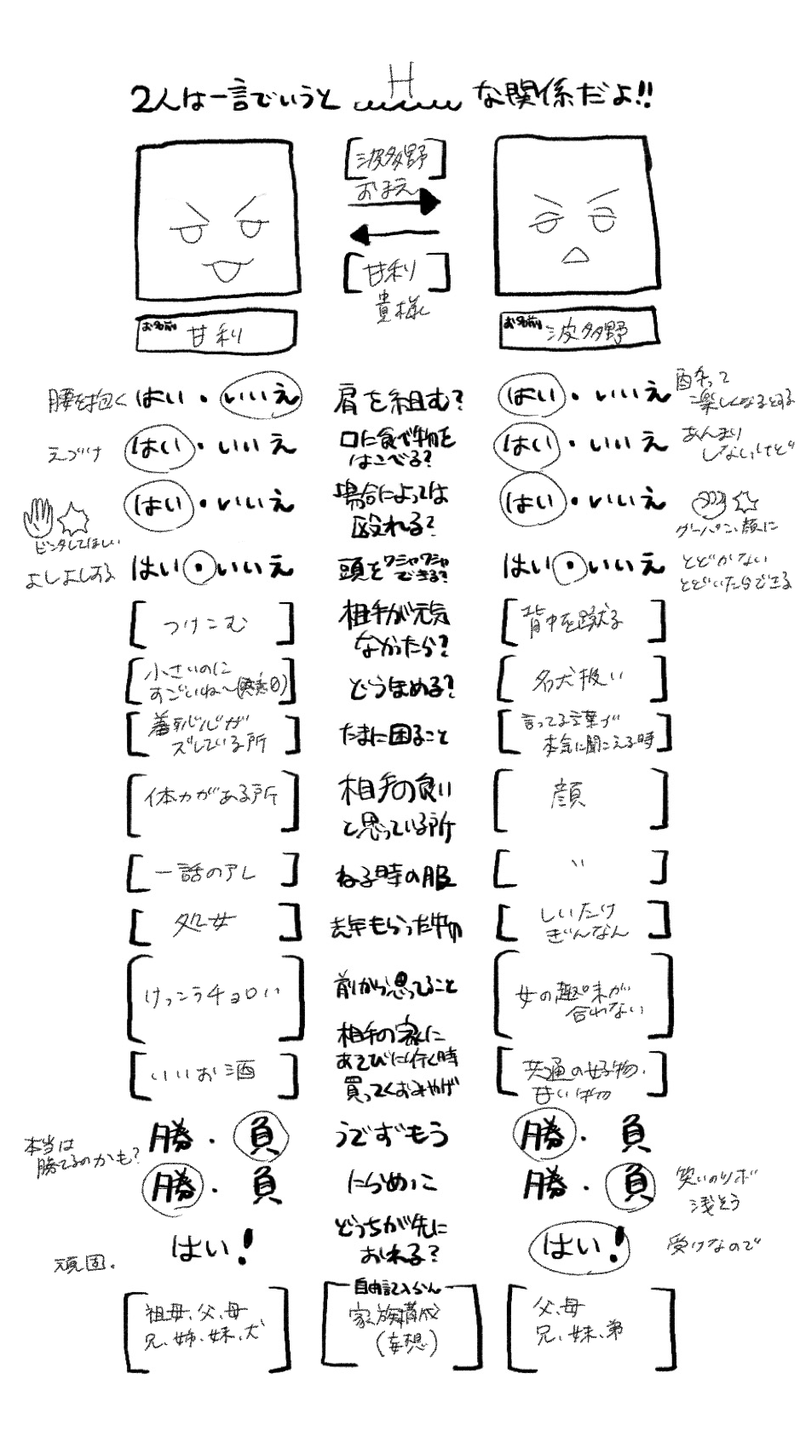 2人は一言でいうと H な関係だよ!!
[波多野]
おまえ
[甘利]
貴様
お名前 甘利
お名前 波多野
腰を抱く はい・いいえ 肩を組む? はい・いいえ 酔って
楽しくなるとする
えづけ はい・いいえ 口に食べ物を
はこべる? はい・いいえ あんまり
しないけど
はい・いいえ 場合によっては
殴れる? はい・いいえ
ビンタしてほしい
グーパン、顔に
よしよしする はい・いいえ 頭をワシャワシャ
できる? はい・いいえ とどかない
とどいたらできる
[つけこむ] 相手が元気
なかったら? [背中を蹴る]
[小さいのに
すごいね〜(悪意0)] どうほめる? [名犬扱い]
[羞恥心が
ズレている所] たまに困ること [言ってる言葉が
本気に聞こえる時]
[体力がある所] 相手の良い
と思っている所 [顔]
[一話のアレ] ねる時の服 [〃]
[処女] 去年もらった物 [しいたけ
ぎんなん]
[けっこうチョロい] 前から思ってること [女の趣味が
合わない]
[いいお酒] 相手の家に
あそびに行く時
買ってくおみやげ [共通の好物、
甘い物]
本当は
勝てるのかも? 勝・負 うでずもう 勝・負
勝・負 にらめっこ 勝・負 笑いのツボ
浅そう
頑固。 はい! どっちが先に
おれる? はい! 受けなので
自由記入らん
[祖母、父、母
兄、姉、妹、犬] [家族構成
(妄想)] [父、母
兄、妹、弟]